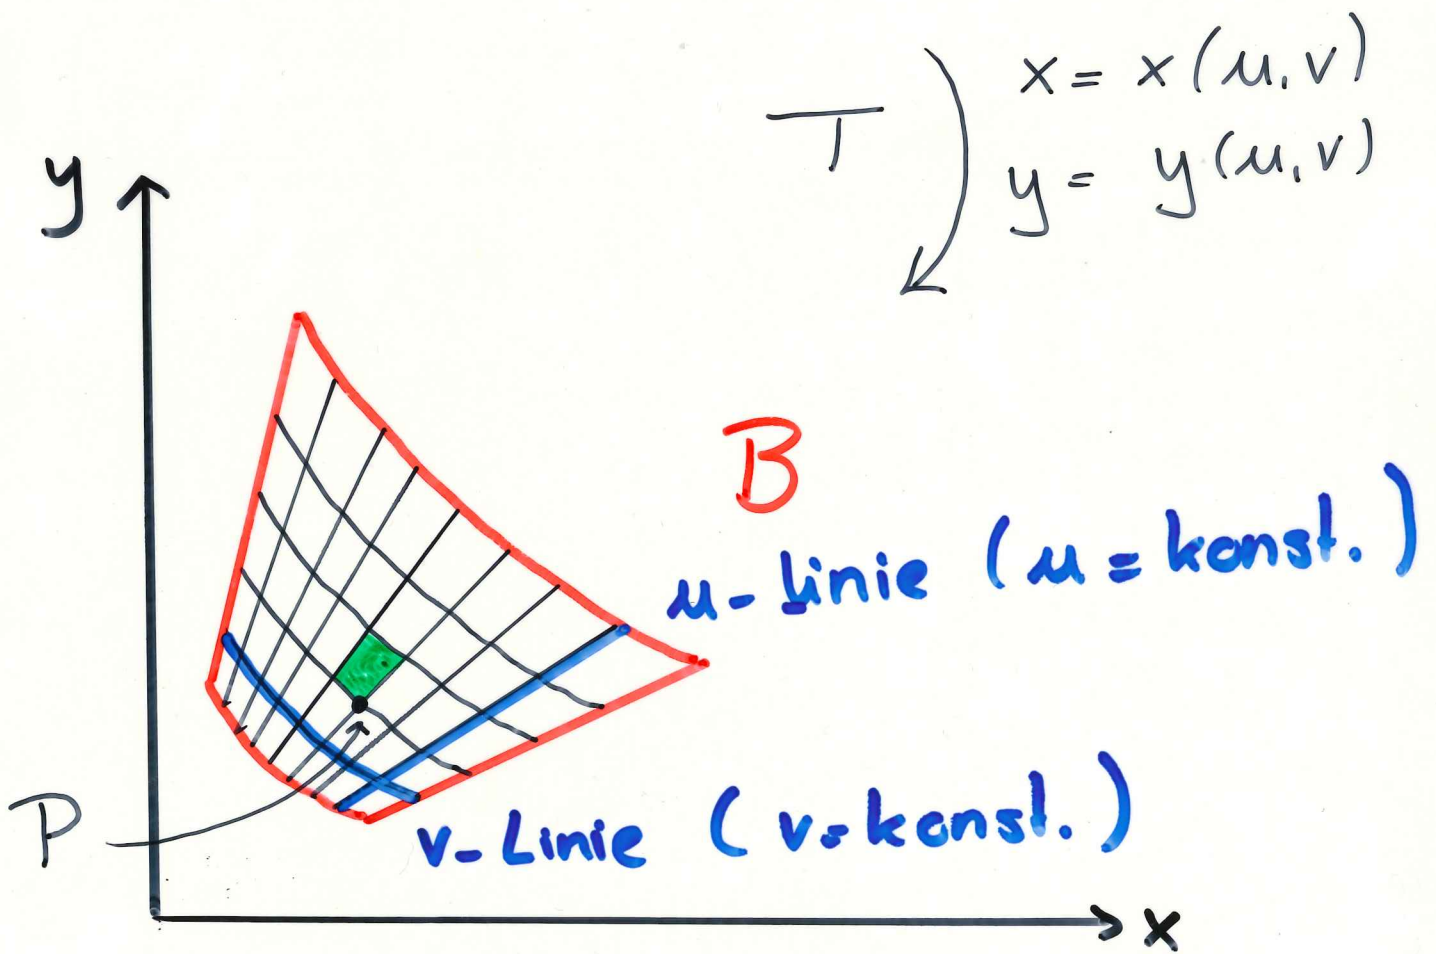 x = x(u,v)
T
y = y(u,v)
y
B
u-Linie (u = konst.)
P
v-Linie (v=konst.)
x